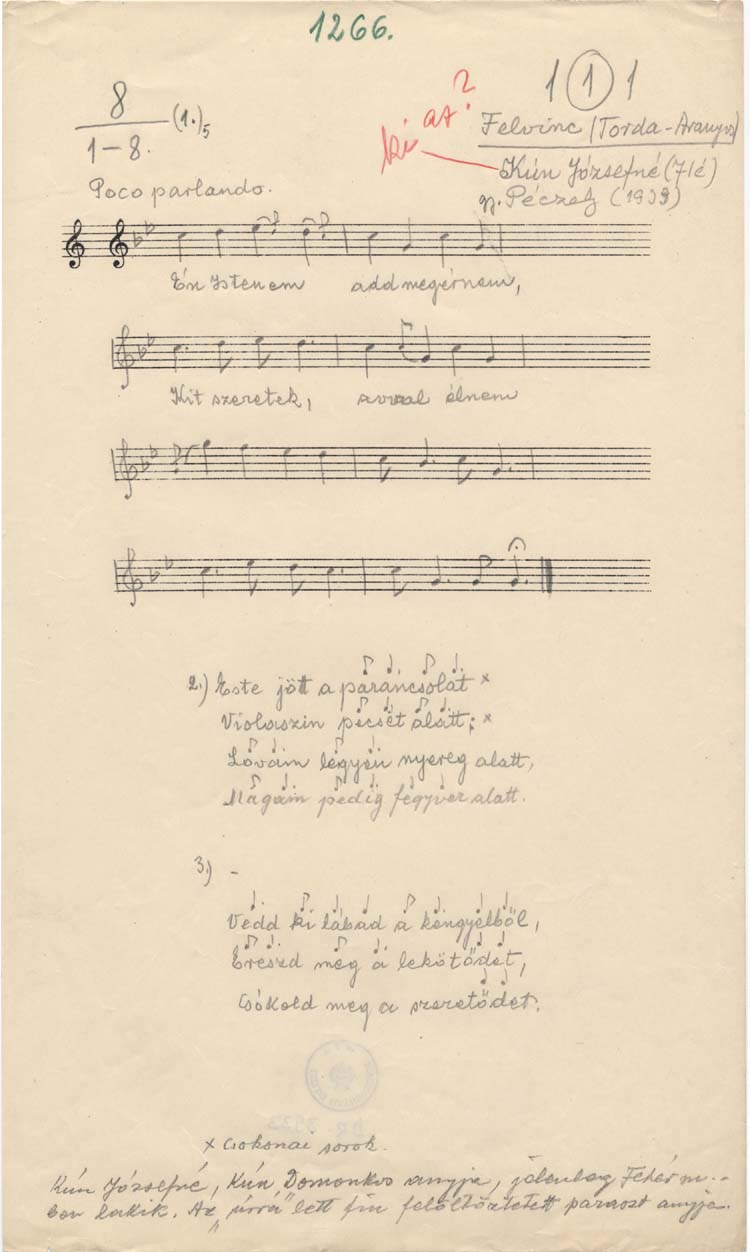 1266.
8
1–8.
(1.)5
1 1 1
ki az?
Felvinc (Torda-Aranyos)
Kún Józsefné (71é)
gy. Péczely (1933)
Poco parlando.
Én Istenem add megérnem,
Kit szeretek, avval élnem
2.) Este jött a parancsolat x
Violaszin pecsét alatt; x
Lovam legyen nyereg alatt,
Magam pedig fegyver alatt.
3.) –
Vedd ki lábad a kengyelből,
Ereszd meg a lekötődet,
Csókold meg a szeretődet.
x Csokonai sorok.
Kún Józsefné, Kún Domonkos anyja, jelenleg Fehérm.-
ben lakik. Az „úrrá" lett fia felöltöztetett paraszt anyja.